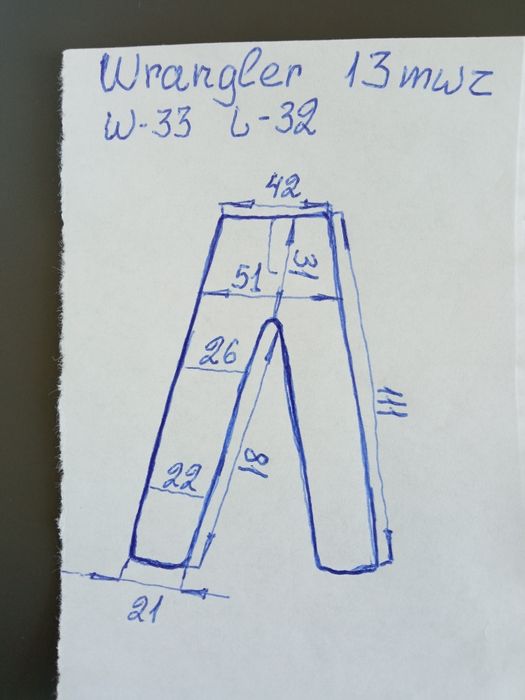 Wrangler 13mwz
W-33 L-32
42
31
51
26
111
81
22
21